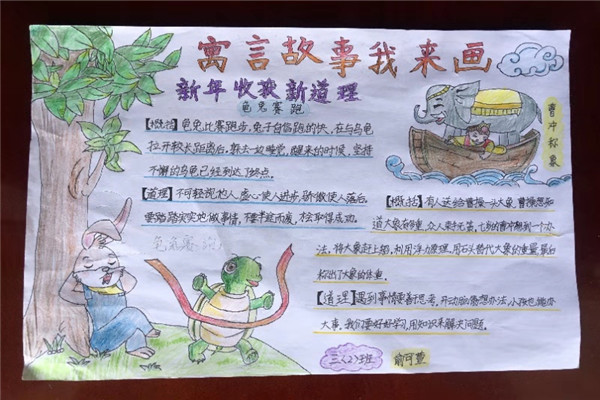 寓言故事我来画
新年收获新道理
龟兔赛跑
【概括】龟兔比赛跑步,兔子自信跑的快,在与乌龟
拉开较长距离后,躺去一边睡觉,醒来的时候,坚持
不懈的乌龟已经到达了终点。
【道理】不可轻视他人,虚心使人进步,骄傲使人落后。
要踏踏实实地做事情,不要半途而废,才会取得成功。
曹冲称象
【概括】有人送给曹操一头大象,曹操想知
道大象有多重,众人束手无策,七岁的曹冲想到一个办
法,将大象赶上船,利用浮力原理,用石头替代大象的重量,最后
称出了大象的体重。
【道理】遇到事情要善于思考,开动脑筋想办法,小孩也能办
大事,我们要好好学习,用知识来解决问题。
三(2)班
俞可萱